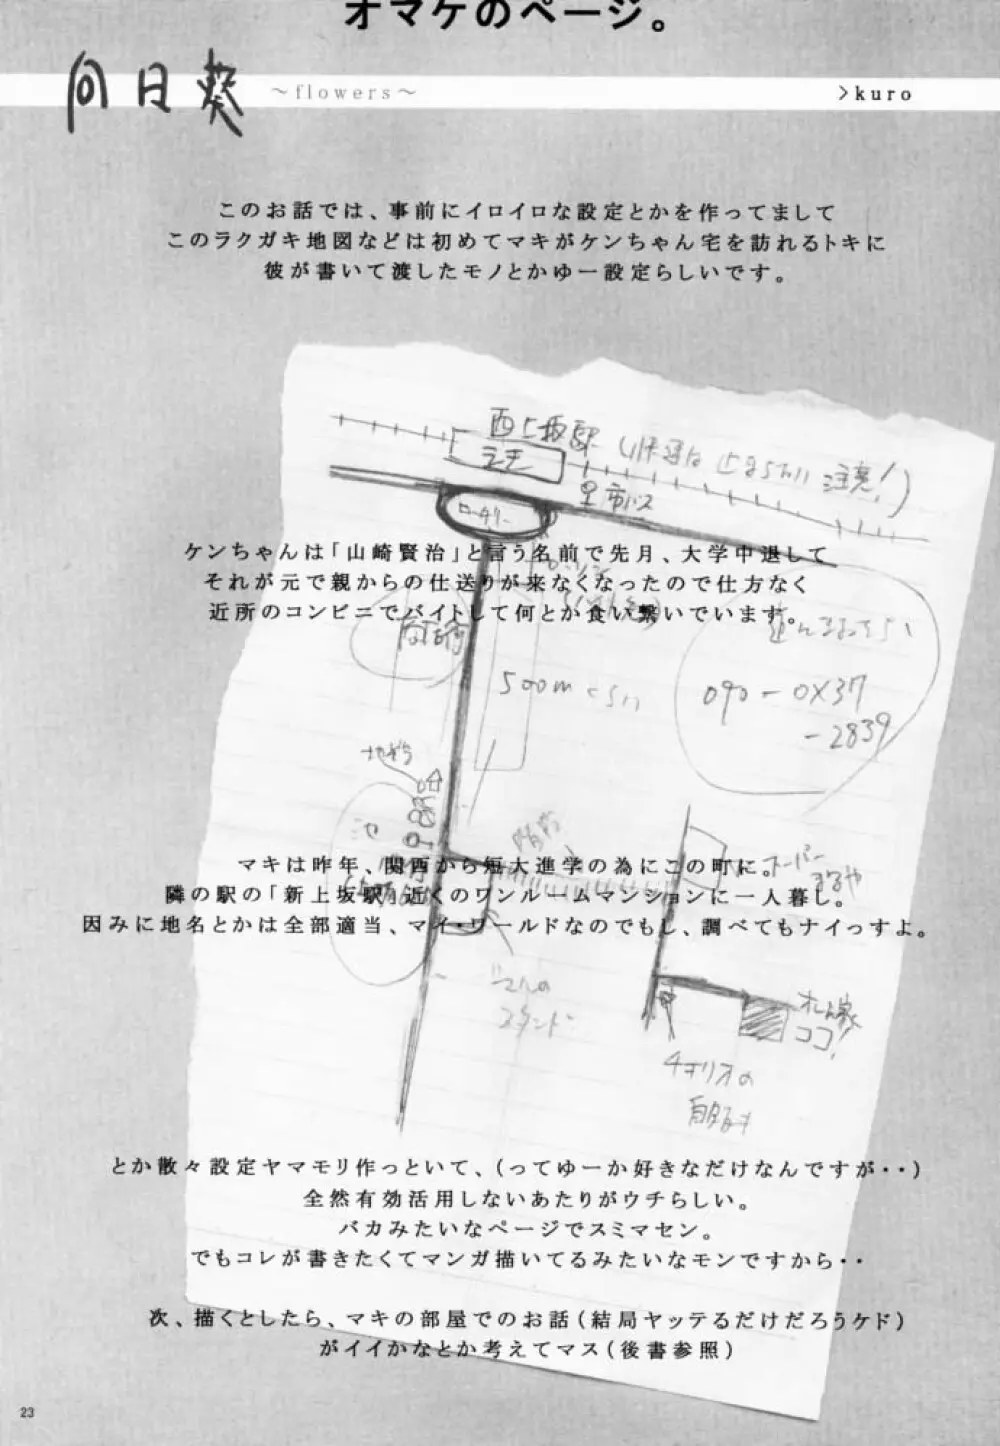 オマケのページ。
向日葵 ～flowers～ >kuro
このお話では、事前にイロイロな設定とかを作ってまして
このラクガキ地図などは初めてマキがケンちゃん宅を訪れるトキに
彼が書いて渡したモノとかゆー設定らしいです。
西上坂駅
注意!)
市バス
ロータリー
ケンちゃんは「山崎賢治」と言う名前で先月、大学中退して
それが元で親からの仕送りが来なくなったので仕方なく
近所のコンビニでバイトして何とか食い繋いでいます。
500mくらい
090-0X37
-2839
階段
スーパー
マキは昨年、関西から短大進学の為にこの町に。
隣の駅の「新上坂駅」近くのワンルームマンションに一人暮し。
因みに地名とかは全部適当、マイ・ワールドなのでもし、調べてもナイっすよ。
オレん家
ココ!
チェリオの
自販キ
とか散々設定ヤマモリ作っといて、(ってゆーか好きなだけなんですが・・)
全然有効活用しないあたりがウチらしい。
バカみたいなページでスミマセン。
でもコレが書きたくてマンガ描いてるみたいなモンですから・・
次、描くとしたら、マキの部屋でのお話(結局ヤッテるだけだろうケド)
がイイかなとか考えてマス(後書参照)
23